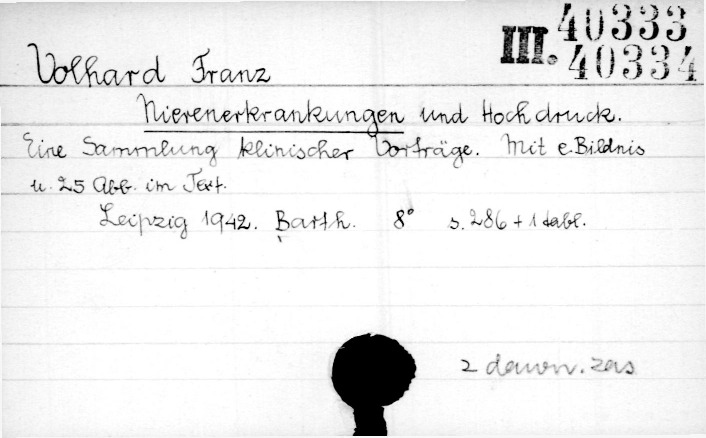 III. 40333
40334
Volhard Franz
Nierenerkrankungen und Hochdruck.
Eine Sammlung klinischer Vorträge. Mit e. Bildnis
u. 25 Abb. im Text.
Leipzig 1942. Barth. 8° s. 286 + 1 tabl.
z dawn. zas